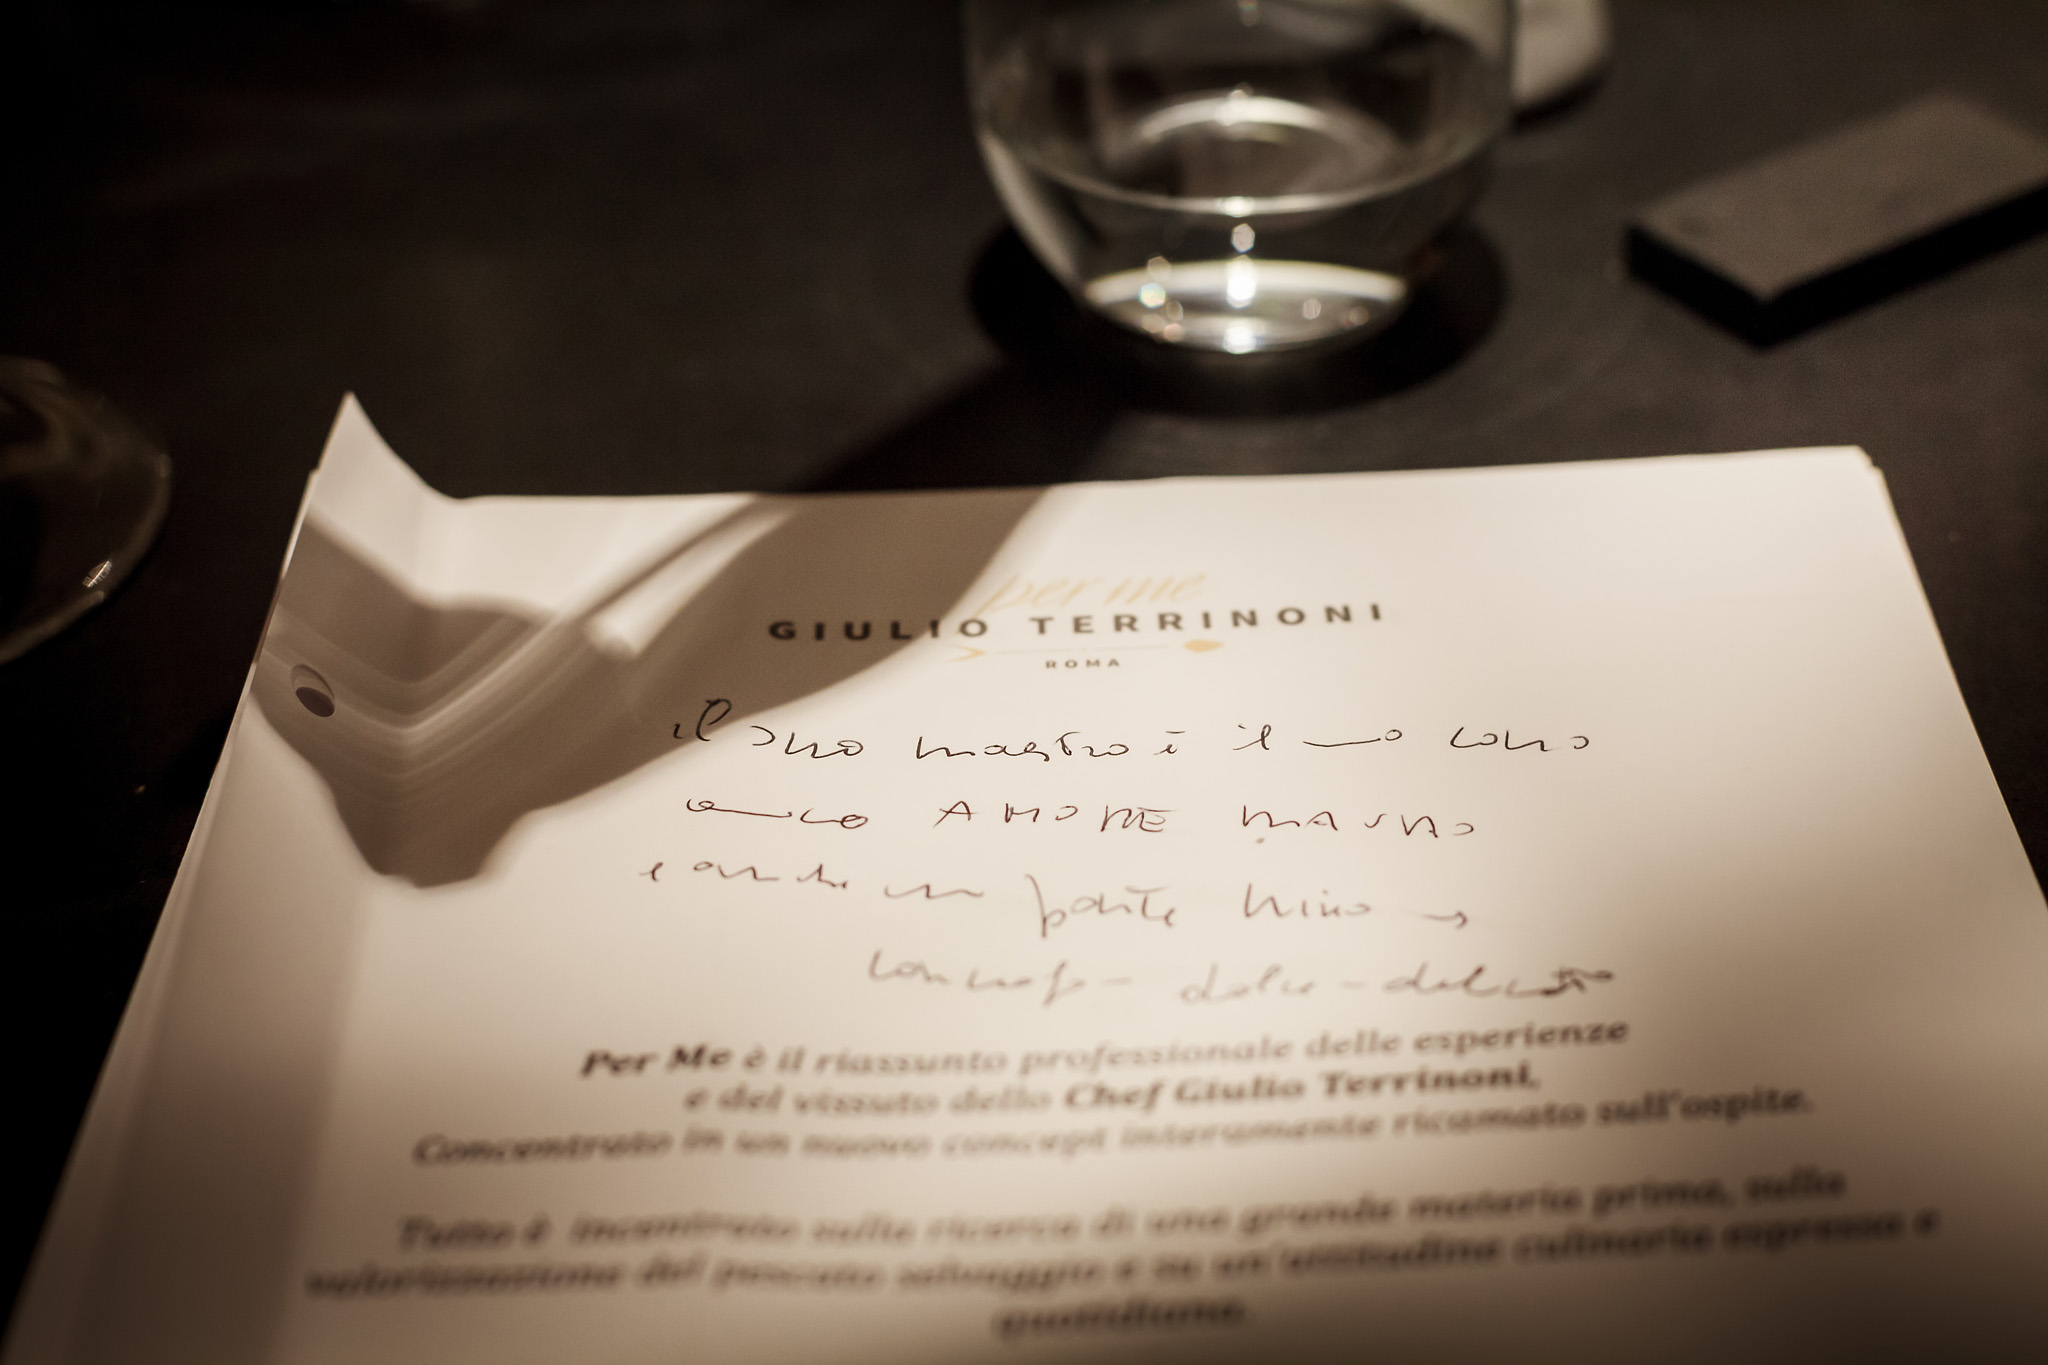 per me
GIULIO TERRINONI
ROMA
il suo mastro è il
AMORE
e anche parte
dolce -
Per Me è il riassunto professionale delle esperienze
e del vissuto dello Chef Giulio Terrinoni.
Concentrato in un nuovo concept interamente ricamato sull'ospite.
Tutto è incentrato sulla ricerca di una grande materia prima, sulla
valorizzazione del pescato selvaggio e su un'attitudine culinaria espressa e
quotidiana.